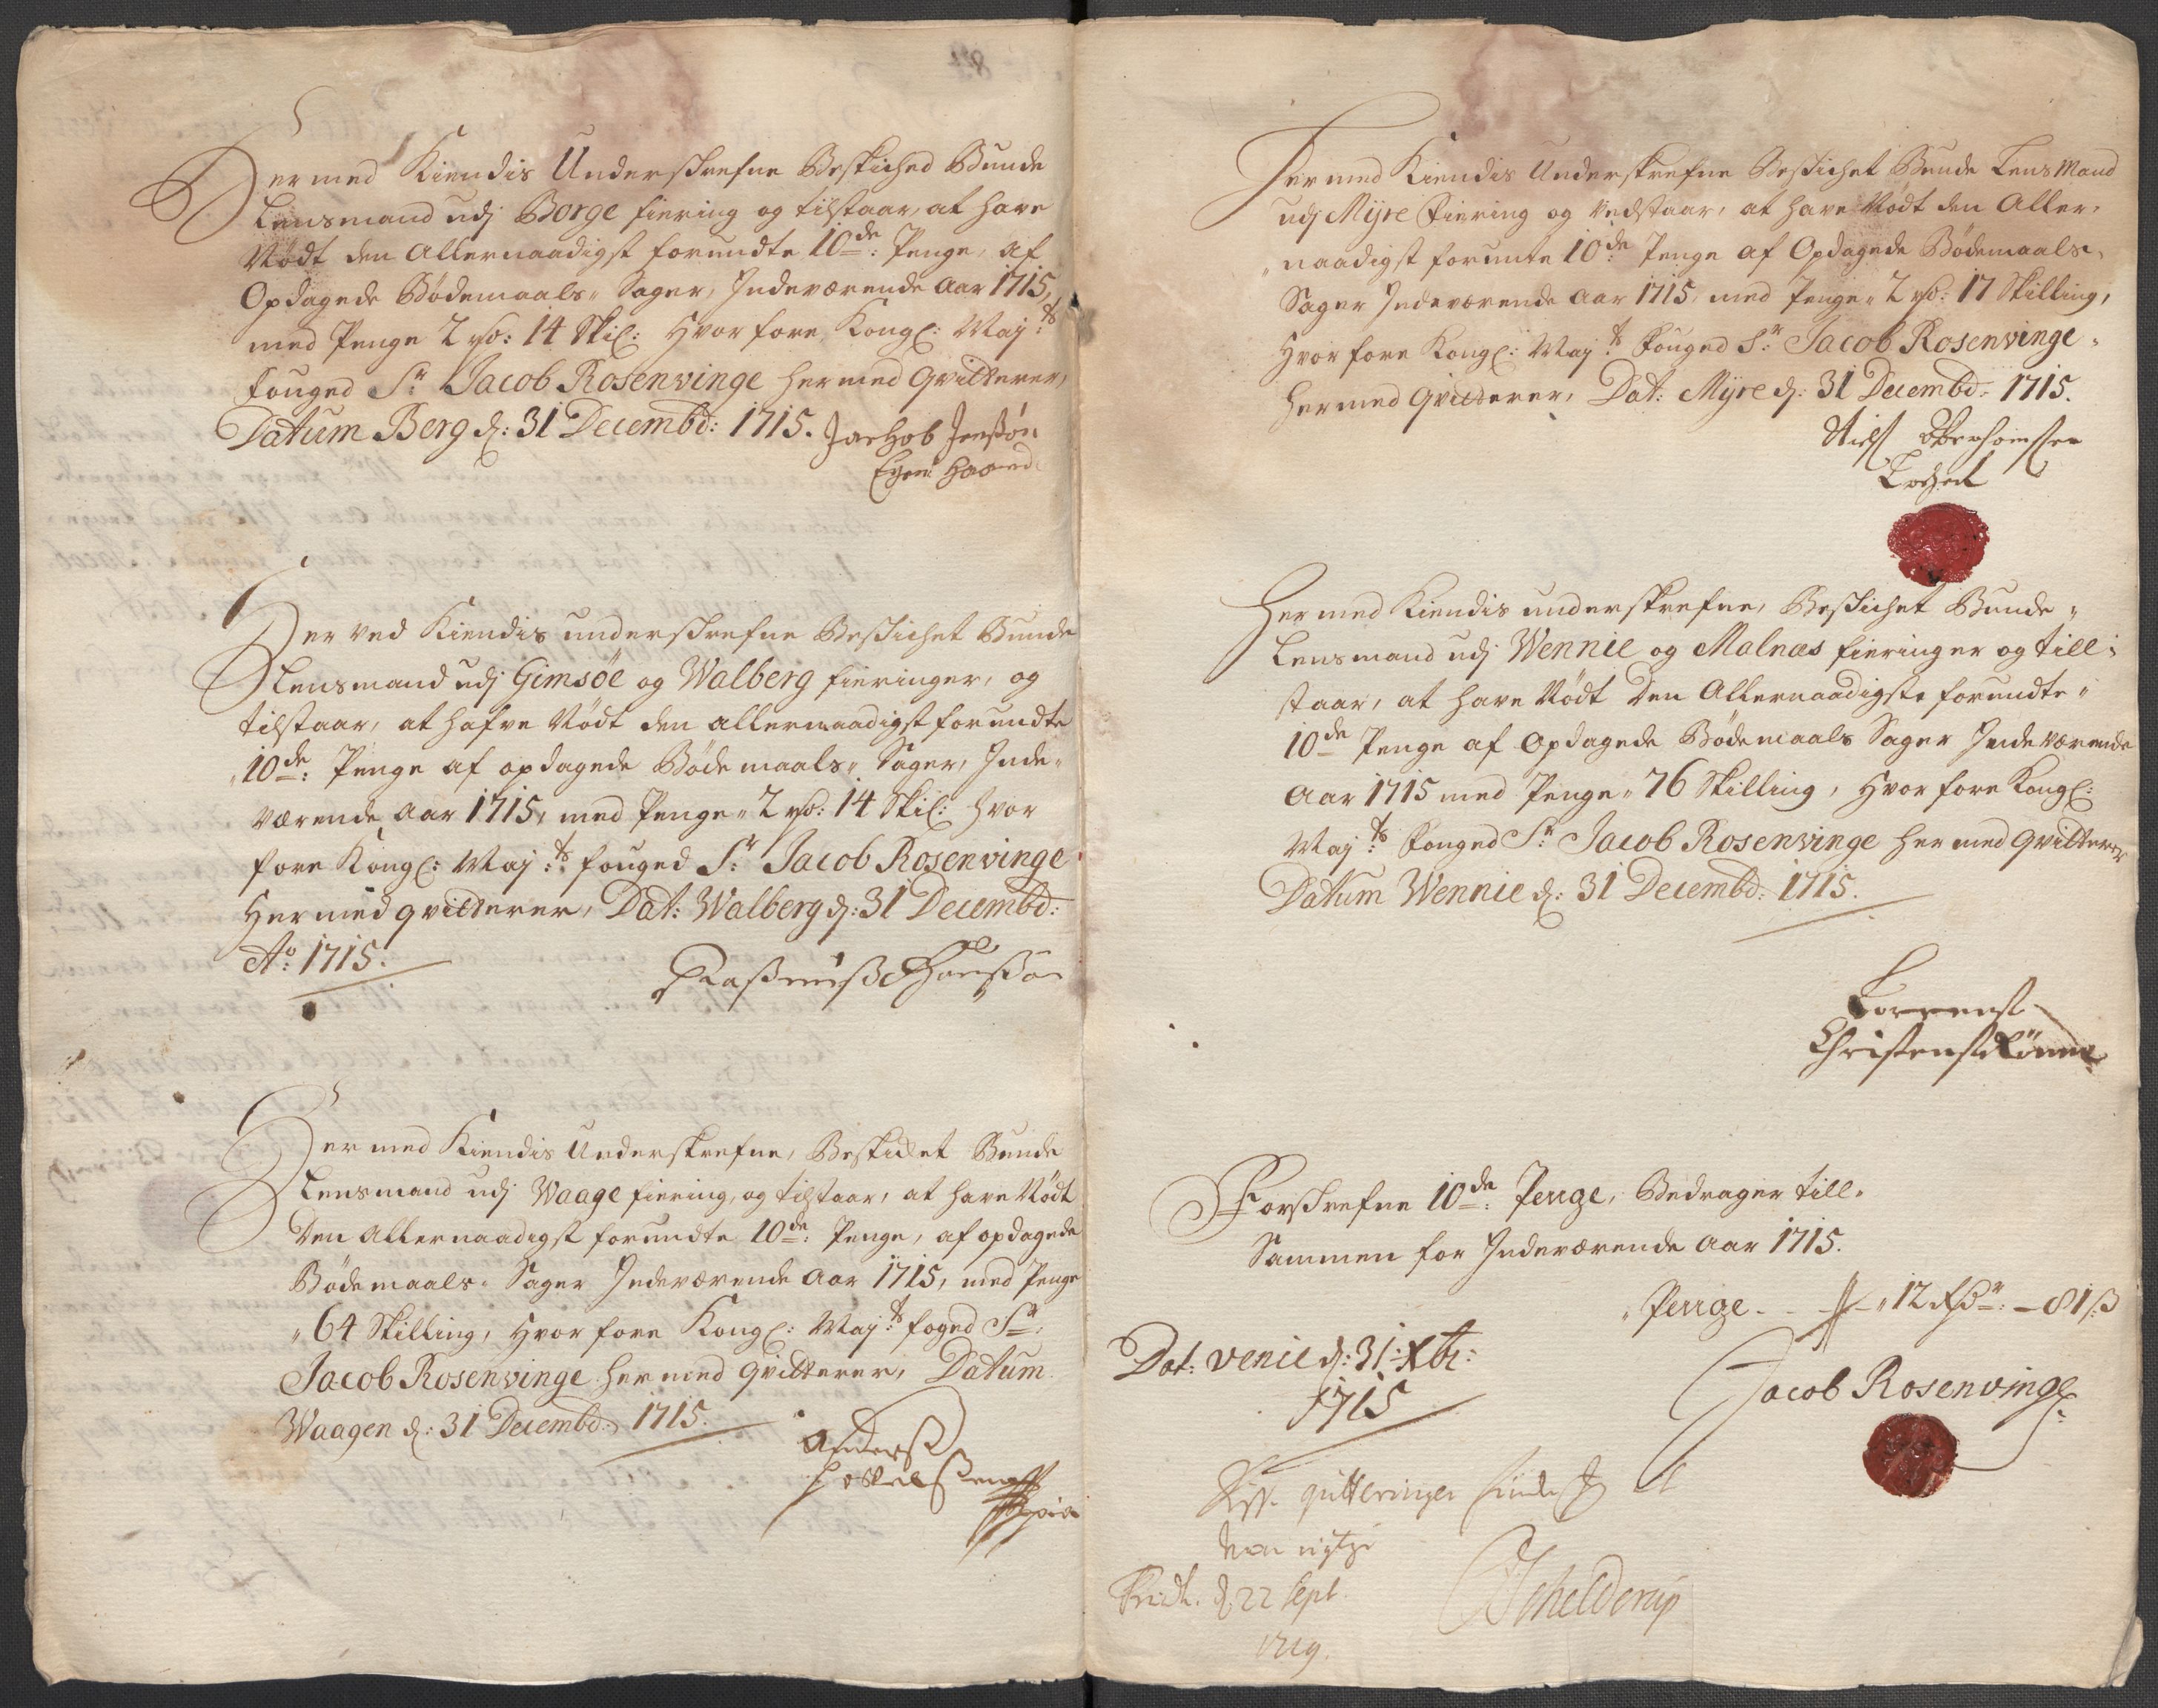 Hermed Kiendis Underskrefne Beskiched Bunde
Lensmand udj Borge fiering og tilstaar, at have
Nødt den Allernaadigst forundte 10de: Penge, af
Opdagede Bødemaals Sager, Indeværende Aar 1715,
med Penge 2 rd: 14 Skil: Hvorfore Kongl: Maj:ts
fouged Sr Jacob Rosenvinge hermed Qvitterer,
Datum Berg d: 31 Decembd: 1715. Jachob Jenssøn
Egen Haand
Herved Kiendis underskrefne Beskichet Bunde
Lensmand udj Gimsøe og Walberg fieringer, og
tilstaar, at hafve Nødt den allernaadigst forundte
10de: Penge af opdagede Bødemaals Sager, Inde-
værende Aar 1715, med Penge 2 rd: 14 Skil: hvor
fore Kongl: Maj:ts fouged Sr: Jacob Rosenvinge
Hermed qvitterer, Dat: Walberg d: 31 Decembd:
Ao: 1715.
Rasmus
Hermed Kiendis Underskrefne, Beskicket Bunde
Lensmand udj Waage fiering, og tilstaar, at have Nødt
Den Allernaadigst forundte 10de: Penge, af opdagede
Bødemaals Sager Indeværende Aar 1715, med Penge
64 Skilling, Hvorfore Kongl: Maj:ts foged Sr:
Jacob Rosenvinge hermed qvitterer, Datum
Waagen d: 31 Decembd: 1715.
Anders
Hermed Kiendis Underskrefne Beskichet Bunde Lens Mand
udj Myre Fiering og Vedstaar, at have Nødt den Aller,
naadigst forunte 10de Penge af Opdagede Bødemaals,
Sager Indeværende Aar 1715, med Penge 2 rd: 17 Skilling,
Hvorfore Kongl: Maj:ts Fouged Sr Jacob Rosenvinge
hermed Qvitterer, Dat: Myre d: 31 Decembd: 1715.
Niels
Hermed Kiendis underskrefne, Beskichet Bunde
Lensmand udj Wennie og Malnæs fieringer og till:
staar, at have Nødt Den Allernaadigste forundte
10de Penge af Opdagede Bødemaals Sager Indeværende
Aar 1715 med Penge 76 Skilling, Hvorfore Kongl:
Maj:ts Fouged Sr: Jacob Rosenvinge hermed qvitterer
Datum Wennie d: 31 Decembd: 1715.
Lorrens
Christens Rønne
Forskrefne 10de: Penge, Bedrager till
Sammen for Indeværende Aar 1715.
Penge - - 12 Rdr: - 81 s
Dat: Venie d: 31 Xbr:
1715
Jacob Rosenvinge
qvitteringer
d 22 Sept.
1719.
Schelderup